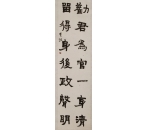 勸君為官一身清
留得身後政聲明